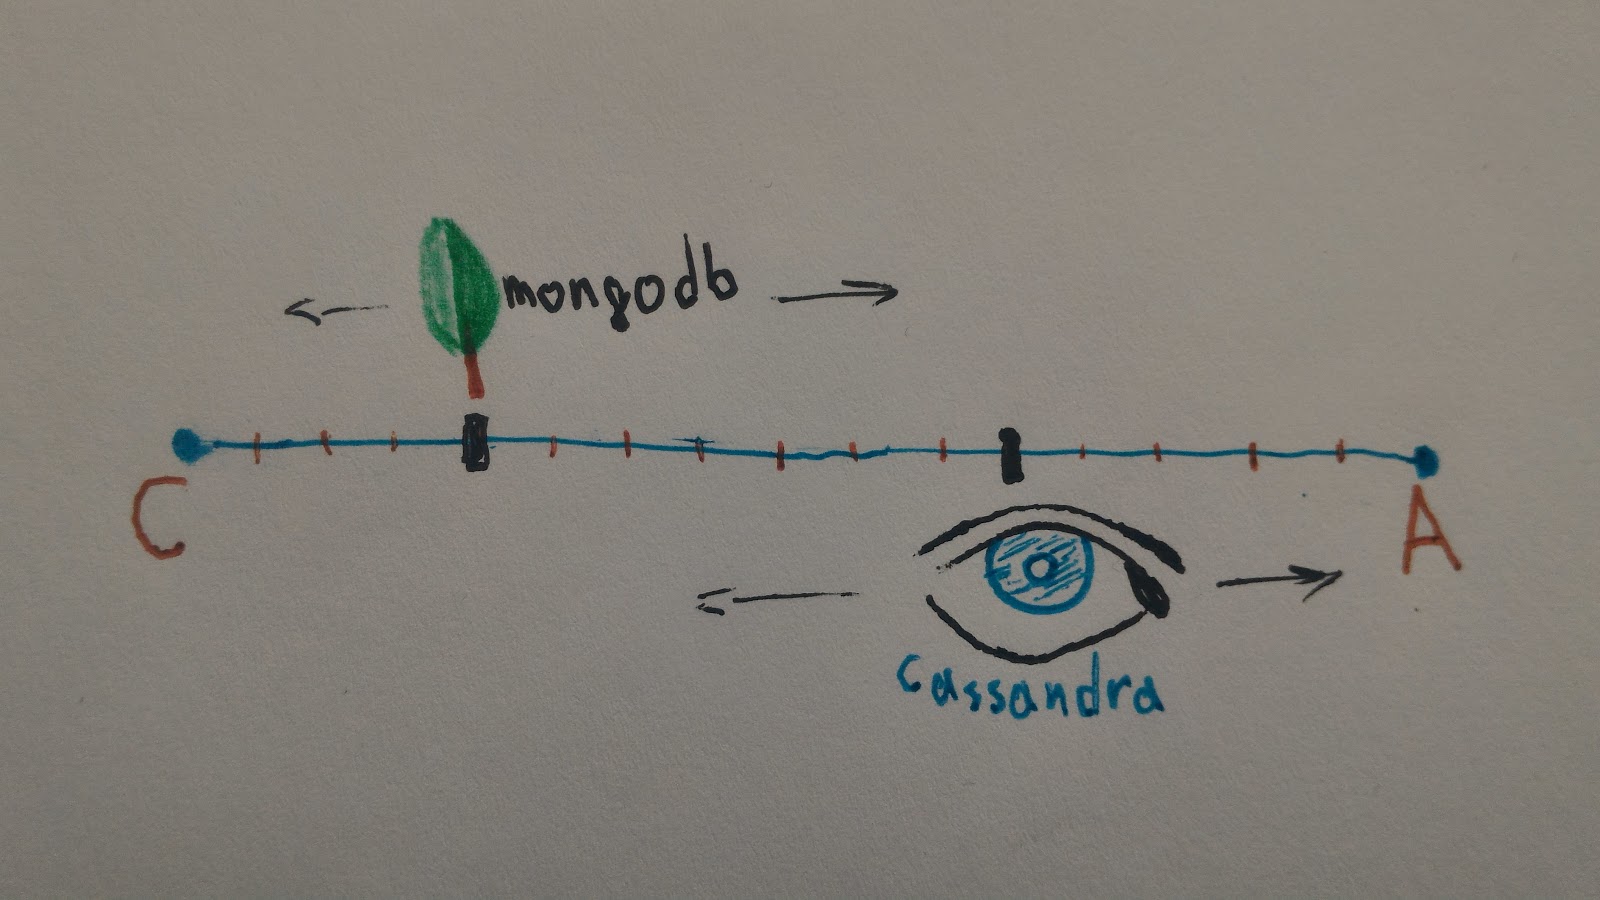 mongodb
C
A
cassandra